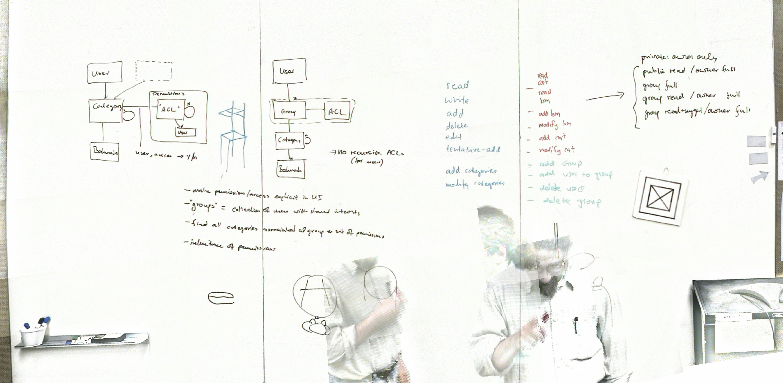 User
Category
Permissions
"ACL"
User
Bookmark
user, access → Y/N
User
Group
ACL
Category
Bookmark
→ No recursive ACLs
(for now)
– make permissions/access explicit in UI
– "groups" = collection of users with shared interests
– find all categories
– inheritance of permissions
read
write
add
delete
edit
tentative-add
add categories
modify categories
read
cat
– read
bm
– add bm
– modify bm
– add cat
– modify cat
– add group
– add user to group
– delete user
– delete group
private: owner only
public read / owner full
group full
group read / owner full
group read+suggest / owner full